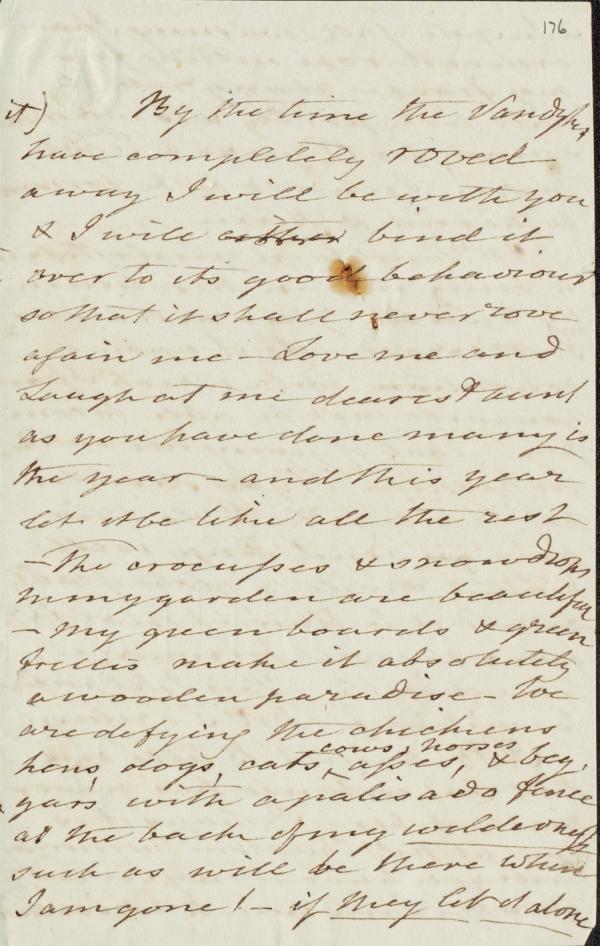 176
it) By the time the Vandykes
have completely roved
away I will be with you
& I will either bind it
over to its good behaviour
so that it shall never rove
again me – Love me and
Laugh at me dearest Aunt
as you have done many is
the year – and this year
let it be like all the rest
– The crocuses & snowdrops
in my garden are beautiful
– my green boards & green
trellis make it absolutely
a wooden paradise – We
are defying the chickens
cows, horses
hens, dogs, cats, asses, & beg
gars with a palisado fence
at the back of my wilderness
such as will be there when
I am gone! – if they let it alone